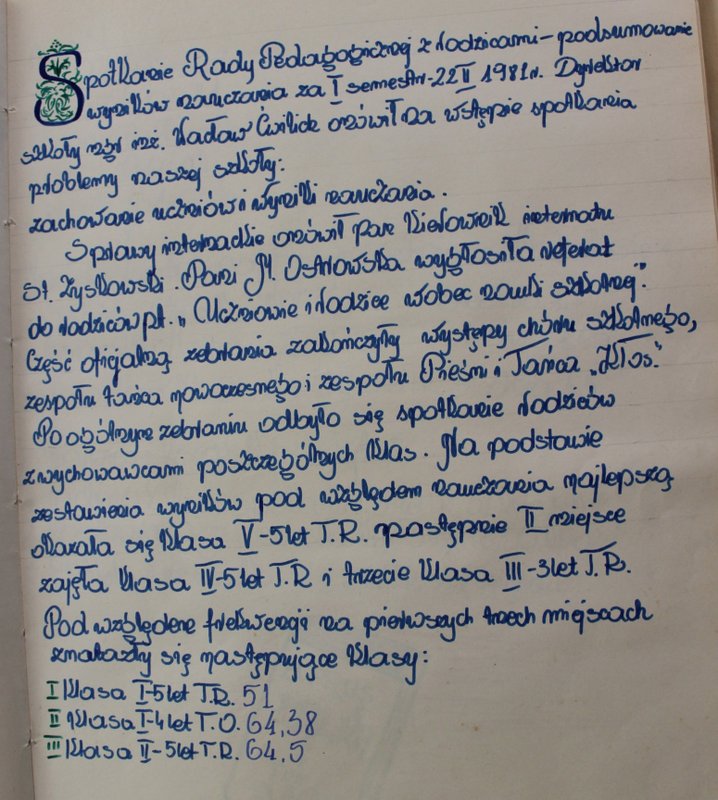 Spotkanie Rady Pedagogicznej z rodzicami – podsumowanie
wyników nauczania za I semestr - 22 II 1981r. Dyrektor
szkoły mgr inż. Wacław Ćwilick omówił na wstępie spotkania
problemy naszej szkoły:
zachowanie uczniów i wyniki nauczania.
Sprawy internackie omówił pan kierownik internatu
St. Zyskowski. Pani M. Ostrowska wygłosiła referat
do rodziców pt. „Uczniowie i rodzice wobec nauki szkolnej".
Część oficjalną zebrania zakończyły występy chóru szkolnego,
zespołu tańca nowoczesnego i zespołu Pieśni i Tańca „Kłos."
Po ogólnym zebraniu odbyło się spotkanie rodziców
z wychowawcami poszczególnych klas. Na podstawie
zestawienia wyników pod względem nauczania najlepszą
okazała się klasa V - 5 let T.R. następnie II miejsce
zajęła klasa IV-5let T.R i trzecie klasa III -3let T.R.
Pod względem frekwencji na pierwszych trzech miejscach
znalazły się następujące klasy:
I Klasa I-5let T.R. 51
II Klasa I-4let T.O. 64,38
III Klasa II-5let T.R. 64,5